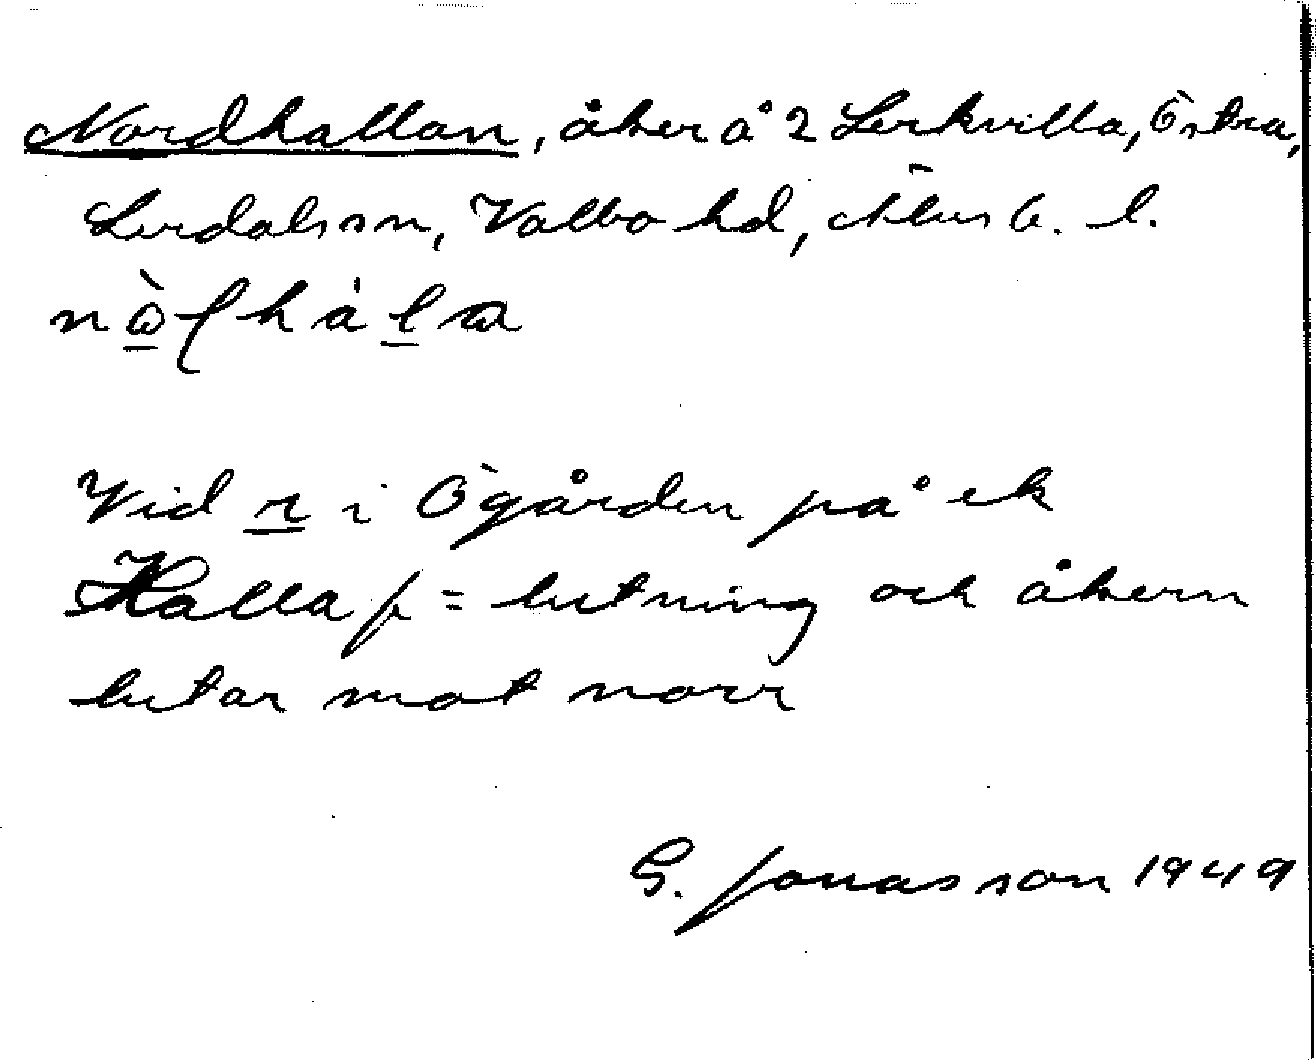 Nordhallan, åker å 2 Lerkvilla, Östra,
Lerdals sn, Valbo hd, Älvsb. l.
Vid r i Ögården på ek
Halla f = lutning och åkern
lutar mot norr
G. Jonasson 1949